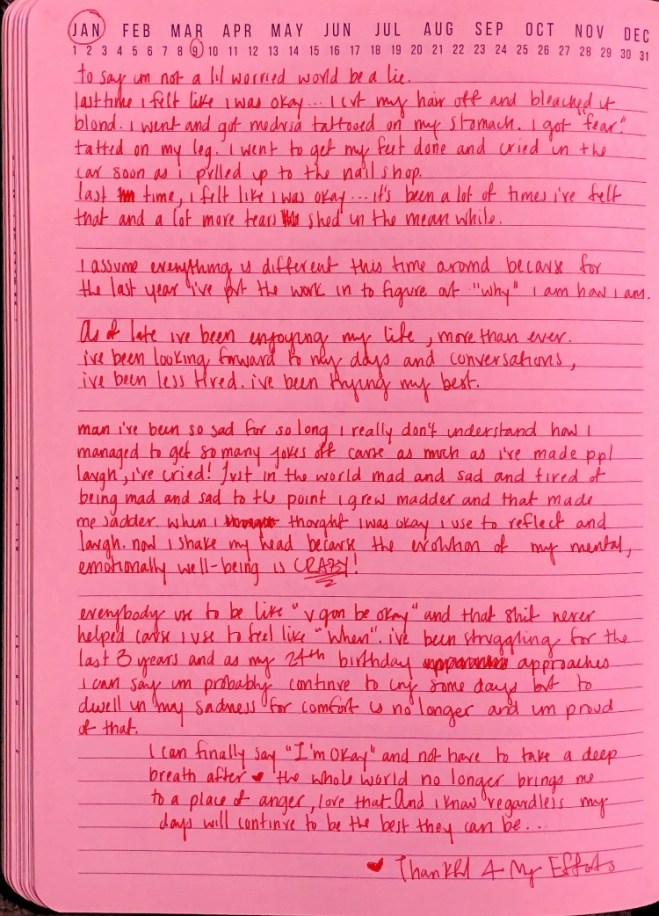 JAN FEB MAR APR MAY JUN JUL AUG SEP OCT NOV DEC
1 2 3 4 5 6 7 8 9 10 11 12 13 14 15 16 17 18 19 20 21 22 23 24 25 26 27 28 29 30 31
to say um not a lil worried would be a lie.
last time i felt like i was okay... i cut my hair off and bleached it
blond. i went and got medusa tattooed on my stomach. i got "fear"
tatted on my leg. i went to get my feet done and cried in the
car soon as i pulled up to the nail shop.
last time, i felt like i was okay... it's been a lot of times i've felt
that and a lot more tears shed in the mean while.
I assume everything is different this time around because for
the last year i've put the work in to figure out "why" i am how i am.
As of late ive been enjoying my life, more than ever.
ive been looking forward to my days and conversations,
ive been less tired. ive been trying my best.
man i've been so sad for so long i really don't understand how i
managed to get so many jokes off cause as much as i've made ppl
laugh, i've cried! Just in the world mad and sad and tired of
being mad and sad to the point i grew madder and that made
me sadder. when i thought i was okay i use to reflect and
laugh. now i shake my head because the evolution of my mental,
emotionally well-being is CRAZY!
everybody use to be like "u gon be okay" and that shit never
helped cause i use to feel like "when". ive been struggling for the
last 3 years and as my 24th birthday approaches
i can say um probably continue to cry some days but to
dwell in my sadness for comfort is no longer and um proud
of that.
I can finally say "I'm okay" and not have to take a deep
breath after ♥ the whole world no longer brings me
to a place of anger, love that. And i know regardless my
days will continue to be the best they can be..
♥ Thankful 4 My Efforts